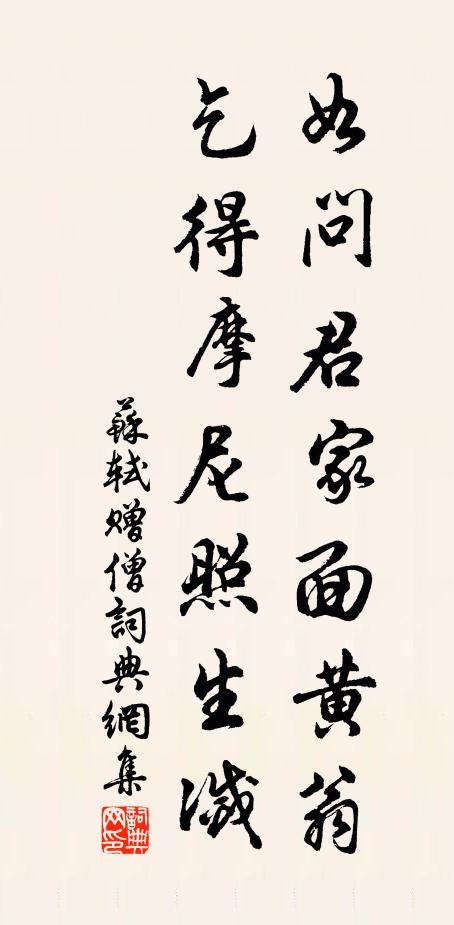 如問君家面黄翁
乞得摩尼照生滅
蘇軾贈僧詞典網集
詞典網印